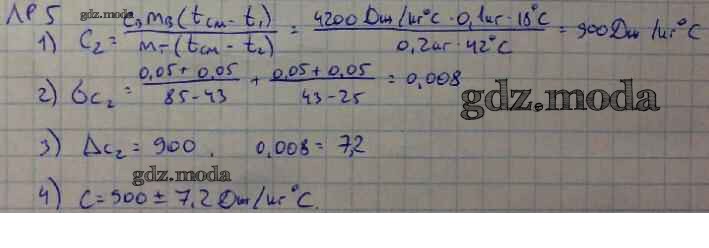 ЛР 5 gdz.moda
1) C₂ = c₃m₃(tсм - t₁) / mт(tсм - t₂) = 4200 Дж/кг°C · 0,1кг · 18°C / 0,2кг · 42°C = 900 Дж/кг°C
2) бc₂ = 0,05 + 0,05 / 85 - 43 + 0,05 + 0,05 / 43 - 25 = 0,008
gdz.moda
3) Δc₂ = 900 . 0,008 = 7,2
gdz.moda
4) C = 900 ± 7,2 Дж/кг°C.